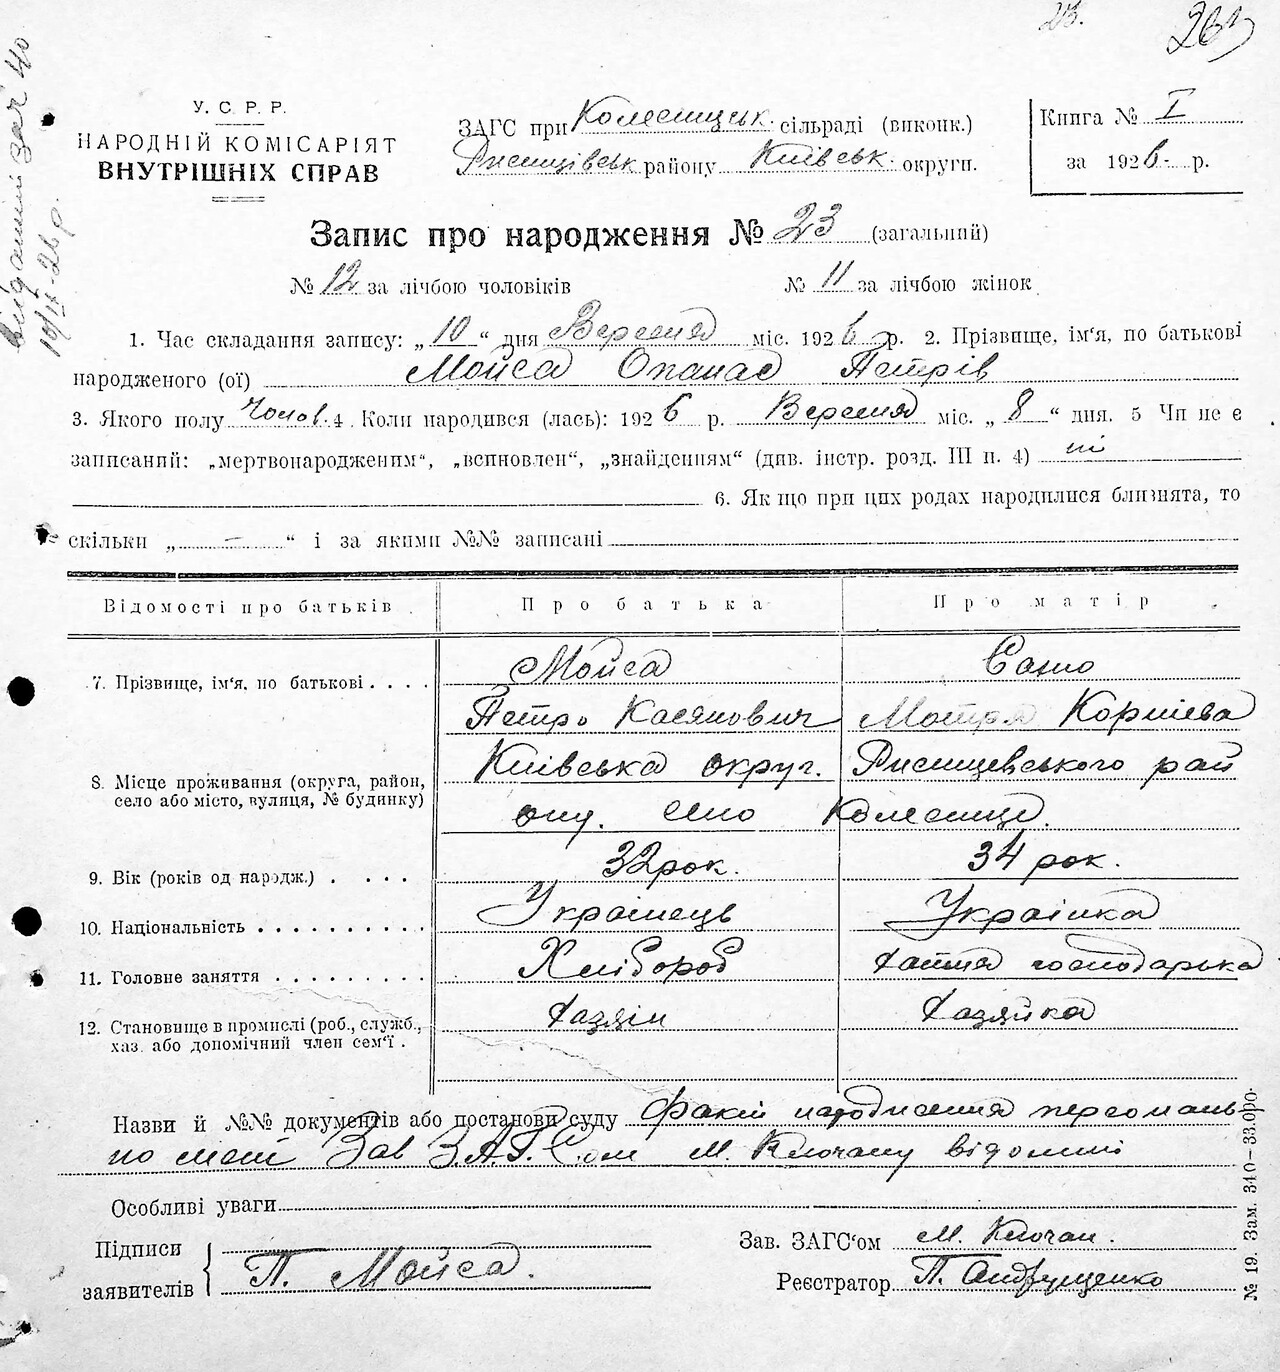 23.
У. С. Р. Р.
НАРОДНІЙ КОМІСАРІЯТ
ВНУТРІШНІХ СПРАВ
ЗАГС при Колесищськ. сільраді (виконк.)
Рисищівськ району Київськ. округи.
Книга № I
за 1926 р.
виданий 40
10/IX-26 р.
Запис про народження № 23 (загальний)
№ 12 за лічбою чоловіків № 11 за лічбою жінок
1. Час складання запису: „ 10 “ дня Вересня міс. 1926 р. 2. Прізвище, ім'я, по батькові
народженого (ої) Мойса Опанас Петрів
3. Якого полу Чолов. 4. Коли народився (лась): 1926 р. Вересня міс. „ 8 “ дня. 5 Чи не є
записаний: „мертвонародженим“, „вспновлен“, „знайденням“ (див. інстр. розд. III п. 4) ні
6. Якщо при цих родах народилися близнята, то
скільки „ — “ і за якими №№ записані
Відомості про батьків Про батька Про матір
7. Прізвище, ім'я, по батькові . . . . Мойса Сашо
Петро Касянович Мотря Корнієва
8. Місце проживання (округа, район, Київська округ. Рисищевського рай
село або місто, вулиця, № будинку) ону. село Колесище.
9. Вік (років од народж.) . . . . 32 рок. 34 рок.
10. Національність . . . . . . . . . . Українець Українка
11. Головне заняття . . . . . . . . Хлібороб Хатня господарька
12. Становище в промислі (роб., служб., Хазяін Хазяйка
хаз. або допомічний член сем'ї .
Назви й №№ документів або постанови суду Факт народження персональ
но мені Зав З.А.Г.С.ом М. Ключану відомий
Особливі уваги
Підписи
заявителів П. Мойса.
Зав. ЗАГС'ом М. Ключан.
Реєстратор П. Андрущенко
№ 19. Зам. 340—33.000.